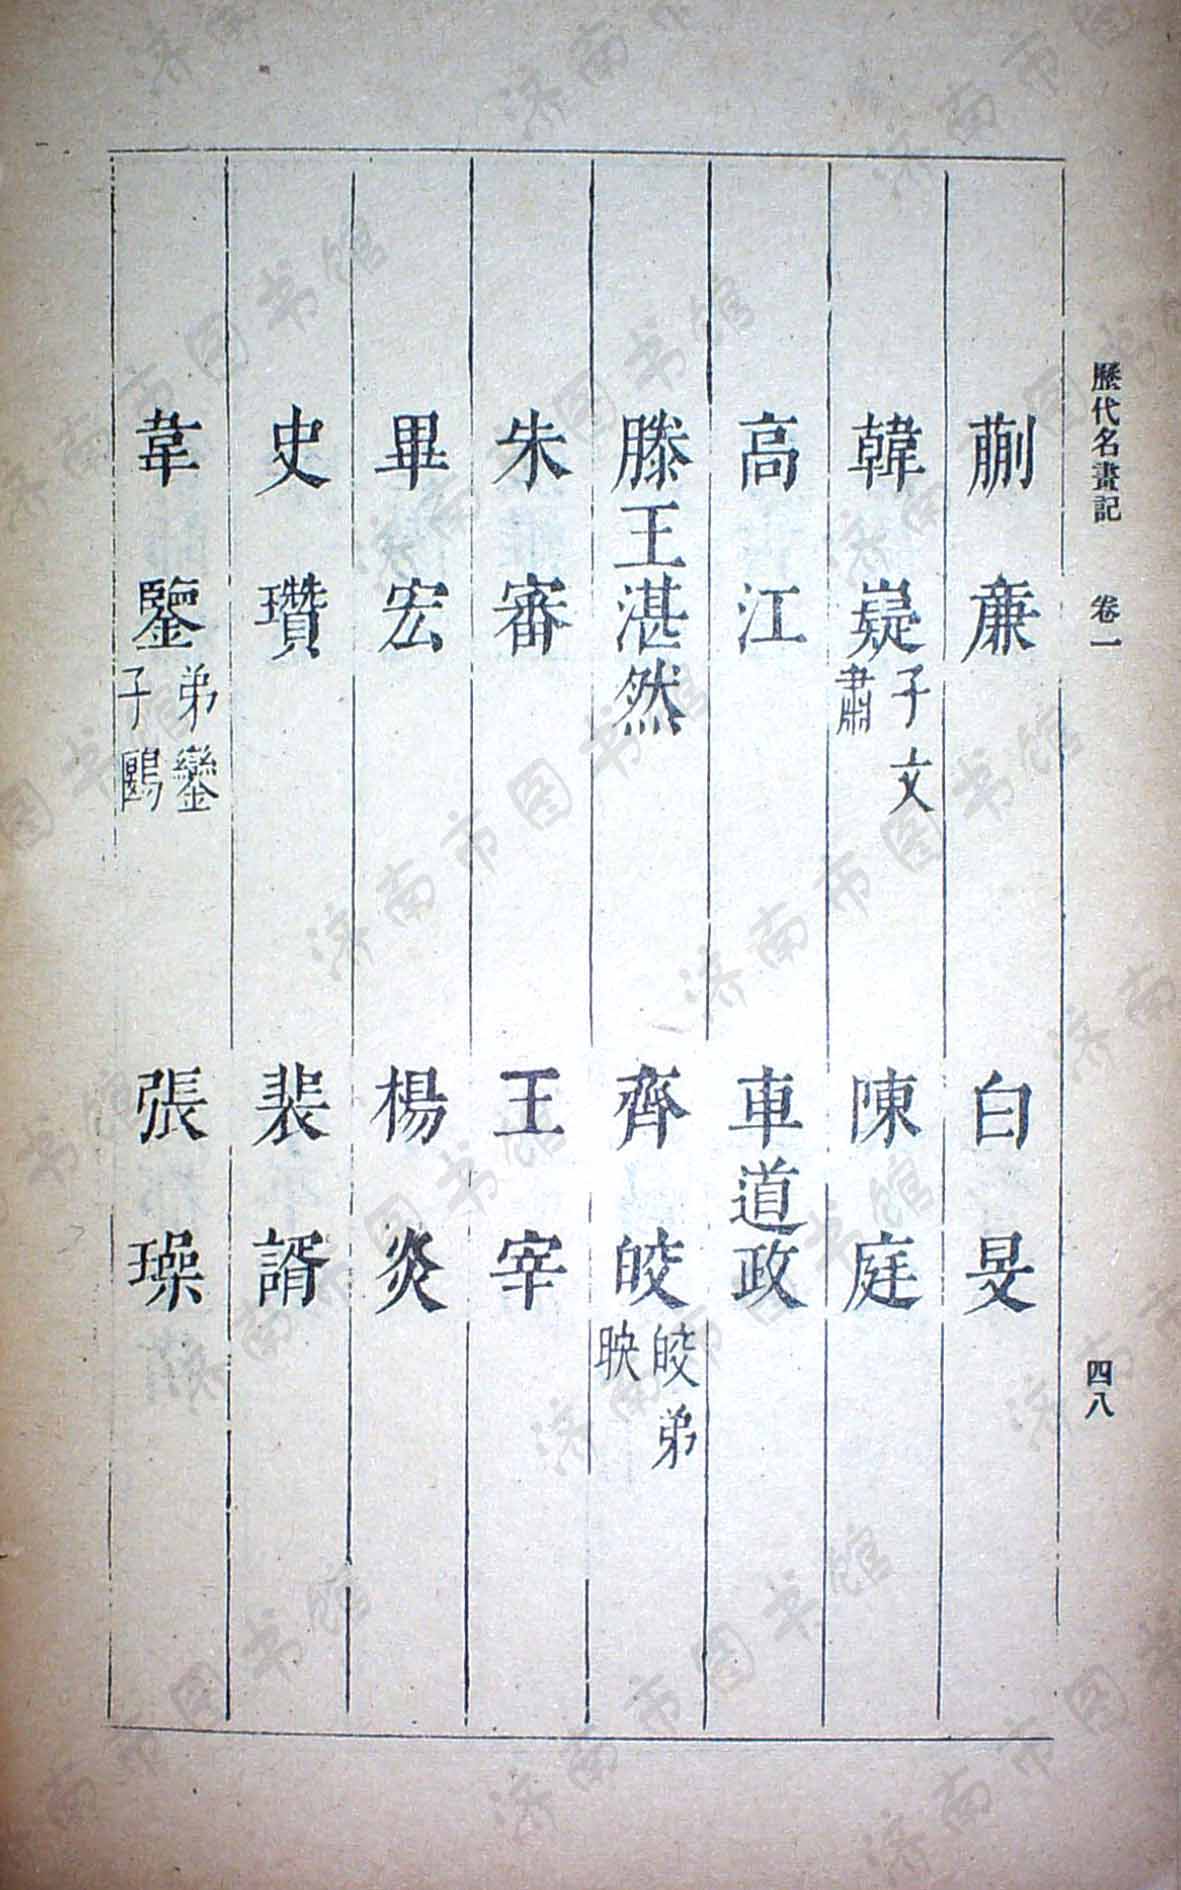 歷代名畫記　卷一　四八
蒯廉　白旻
韓嶷子文肅　陳庭
高江　車道政
滕王湛然　齊皎皎弟映
朱審　王宰
畢宏　楊炎
史瓚　裴諝
韋鑒弟鑾子鷗　張璪
济南市图书馆